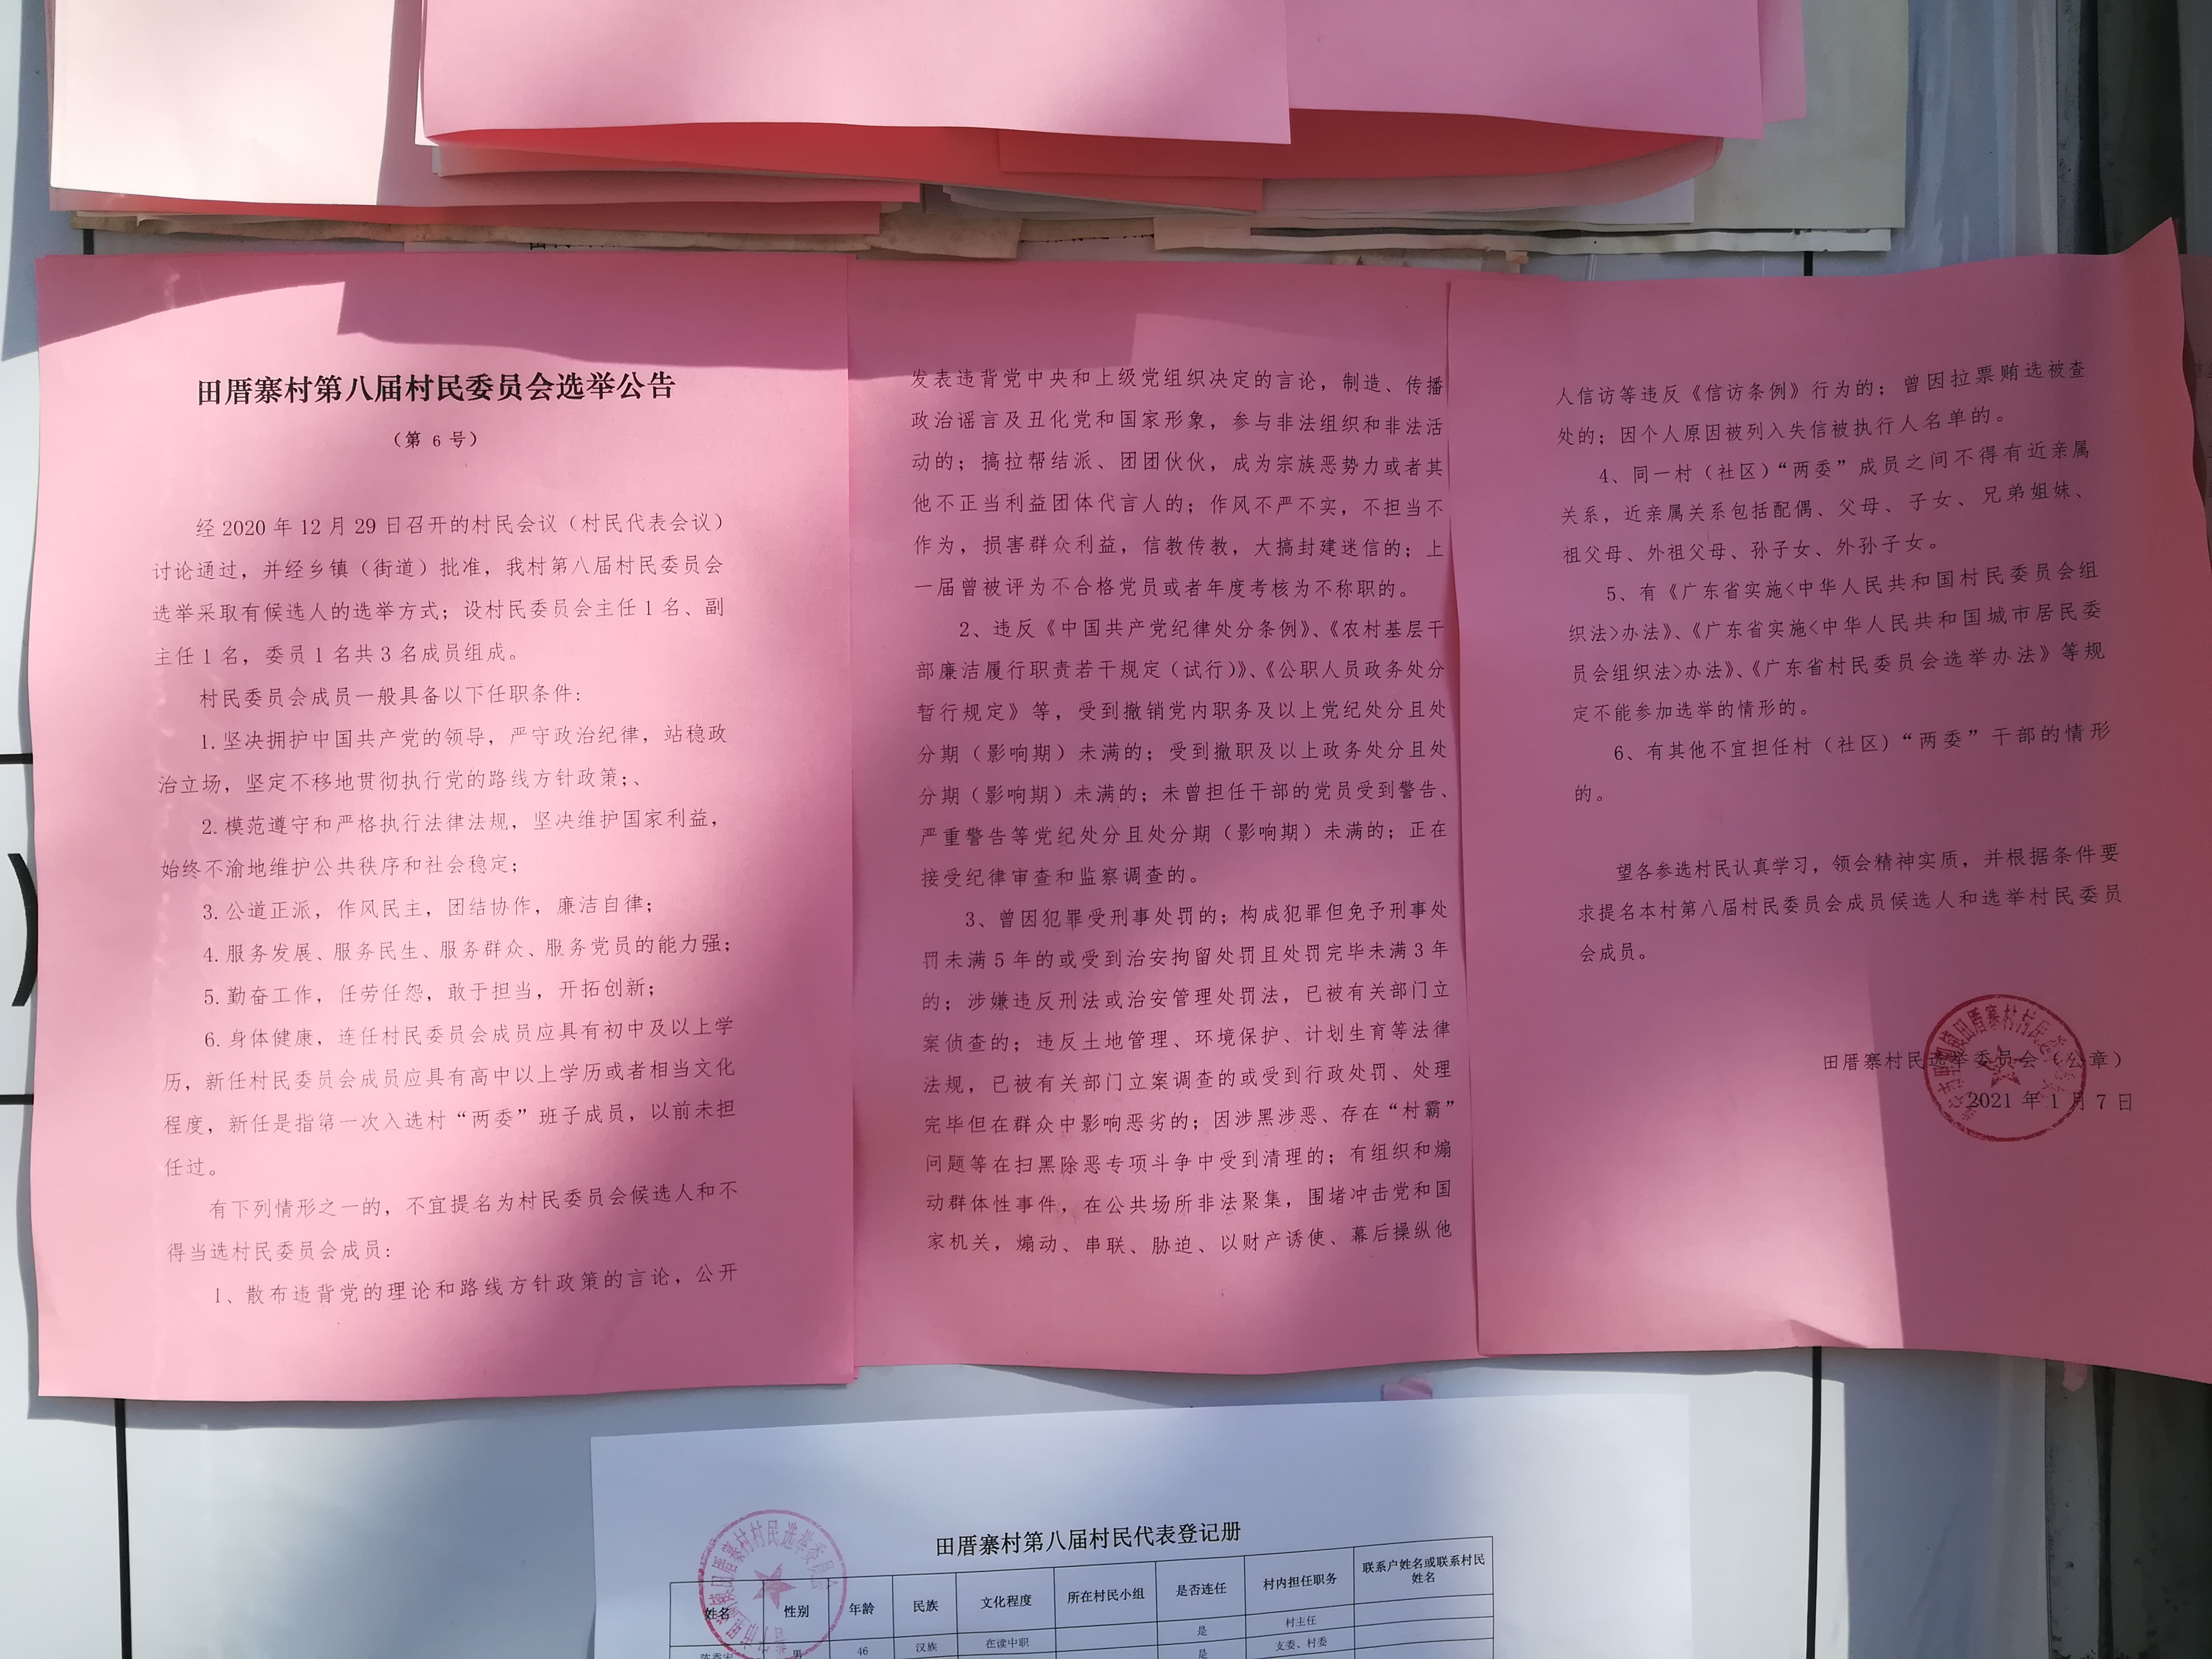 田厝寨村第八届村民委员会选举公告
（第 6 号）
经 2020 年 12 月 29 日召开的村民会议（村民代表会议）
讨论通过，并经乡镇（街道）批准，我村第八届村民委员会
选举采取有候选人的选举方式；设村民委员会主任 1 名、副
主任 1 名，委员 1 名共 3 名成员组成。
村民委员会成员一般具备以下任职条件：
1.坚决拥护中国共产党的领导，严守政治纪律，站稳政
治立场，坚定不移地贯彻执行党的路线方针政策；、
2.模范遵守和严格执行法律法规，坚决维护国家利益，
始终不渝地维护公共秩序和社会稳定；
3.公道正派，作风民主，团结协作，廉洁自律；
4.服务发展、服务民生、服务群众、服务党员的能力强；
5.勤奋工作，任劳任怨，敢于担当，开拓创新；
6.身体健康，连任村民委员会成员应具有初中及以上学
历，新任村民委员会成员应具有高中以上学历或者相当文化
程度，新任是指第一次入选村“两委”班子成员，以前未担
任过。
有下列情形之一的，不宜提名为村民委员会候选人和不
得当选村民委员会成员：
1、散布违背党的理论和路线方针政策的言论，公开
发表违背党中央和上级党组织决定的言论，制造、传播
政治谣言及丑化党和国家形象，参与非法组织和非法活
动的；搞拉帮结派、团团伙伙，成为宗族恶势力或者其
他不正当利益团体代言人的；作风不严不实，不担当不
作为，损害群众利益，信教传教，大搞封建迷信的；上
一届曾被评为不合格党员或者年度考核为不称职的。
2、违反《中国共产党纪律处分条例》、《农村基层干
部廉洁履行职责若干规定（试行）》、《公职人员政务处分
暂行规定》等，受到撤销党内职务及以上党纪处分且处
分期（影响期）未满的；受到撤职及以上政务处分且处
分期（影响期）未满的；未曾担任干部的党员受到警告、
严重警告等党纪处分且处分期（影响期）未满的；正在
接受纪律审查和监察调查的。
3、曾因犯罪受刑事处罚的；构成犯罪但免予刑事处
罚未满 5 年的或受到治安拘留处罚且处罚完毕未满 3 年
的；涉嫌违反刑法或治安管理处罚法，已被有关部门立
案侦查的；违反土地管理、环境保护、计划生育等法律
法规，已被有关部门立案调查的或受到行政处罚、处理
完毕但在群众中影响恶劣的；因涉黑涉恶、存在“村霸”
问题等在扫黑除恶专项斗争中受到清理的；有组织和煽
动群体性事件，在公共场所非法聚集，围堵冲击党和国
家机关，煽动、串联、胁迫、以财产诱使、幕后操纵他
人信访等违反《信访条例》行为的；曾因拉票贿选被查
处的；因个人原因被列入失信被执行人名单的。
4、同一村（社区）“两委”成员之间不得有近亲属
关系，近亲属关系包括配偶、父母、子女、兄弟姐妹、
祖父母、外祖父母、孙子女、外孙子女。
5、有《广东省实施<中华人民共和国村民委员会组
织法>办法》、《广东省实施<中华人民共和国城市居民委
员会组织法>办法》、《广东省村民委员会选举办法》等规
定不能参加选举的情形的。
6、有其他不宜担任村（社区）“两委”干部的情形
的。
望各参选村民认真学习，领会精神实质，并根据条件要
求提名本村第八届村民委员会成员候选人和选举村民委员
会成员。
田厝寨村民选举委员会（公章）
2021 年 1 月 7 日
田厝寨村第八届村民代表登记册
姓名 性别 年龄 民族 文化程度 所在村民小组 是否连任 村内担任职务 联系户姓名或联系村民
姓名
男 46 汉族 在读中职 是 村主任
是 支委、村委